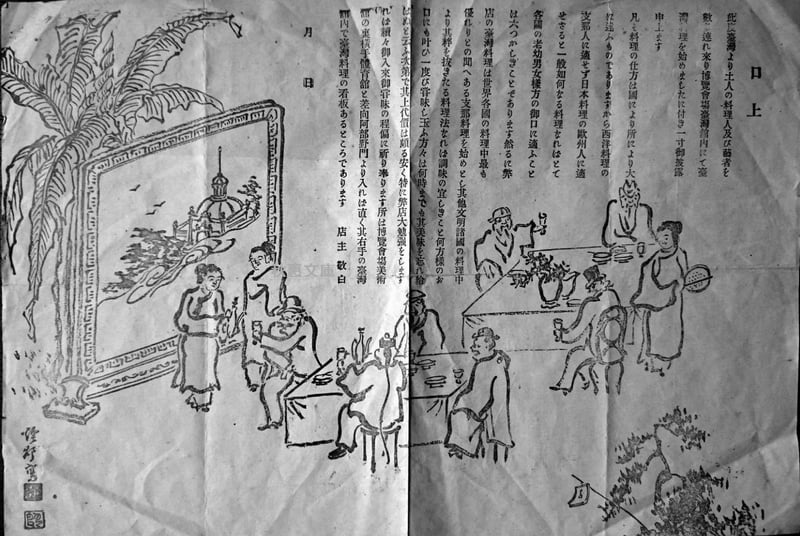 口上
此度臺灣より土人の料理人及び藝者を
數名連れ來り博覽會場臺灣館內にて臺
灣料理を始めましたに付き一寸御披露
申上ます
凡そ料理の仕方は國により所により大
に違ふものでありますから西洋料理の
支那人に適せず日本料理の歐州人に適
せざると一般如何なる料理なればとて
各國の老幼男女樣方の御口に適ふこと
は六つかしきことであります然るに弊
店の臺灣料理は世界各國の料理中最も
優れりとの聞へある支那料理を始めとし其他文明諸國の料理中
より其粹を拔きたる料理法なれば調味の宜しきこと何方樣のお
口にも叶ひ一度び賞味し玉ふ方々は何時までも其美味を忘れ給
はぬと云ふ次第で其上代價は頗る安く特に弊店大勉强をします
れば續々御入來御賞味の程偏に祈り奉ります所は博覽會場美術
館の裏橫手體育館と差向阿部野門より入れば直く其右手の臺灣
館內で臺灣料理の看板あるところであります 店主敬白
月 日